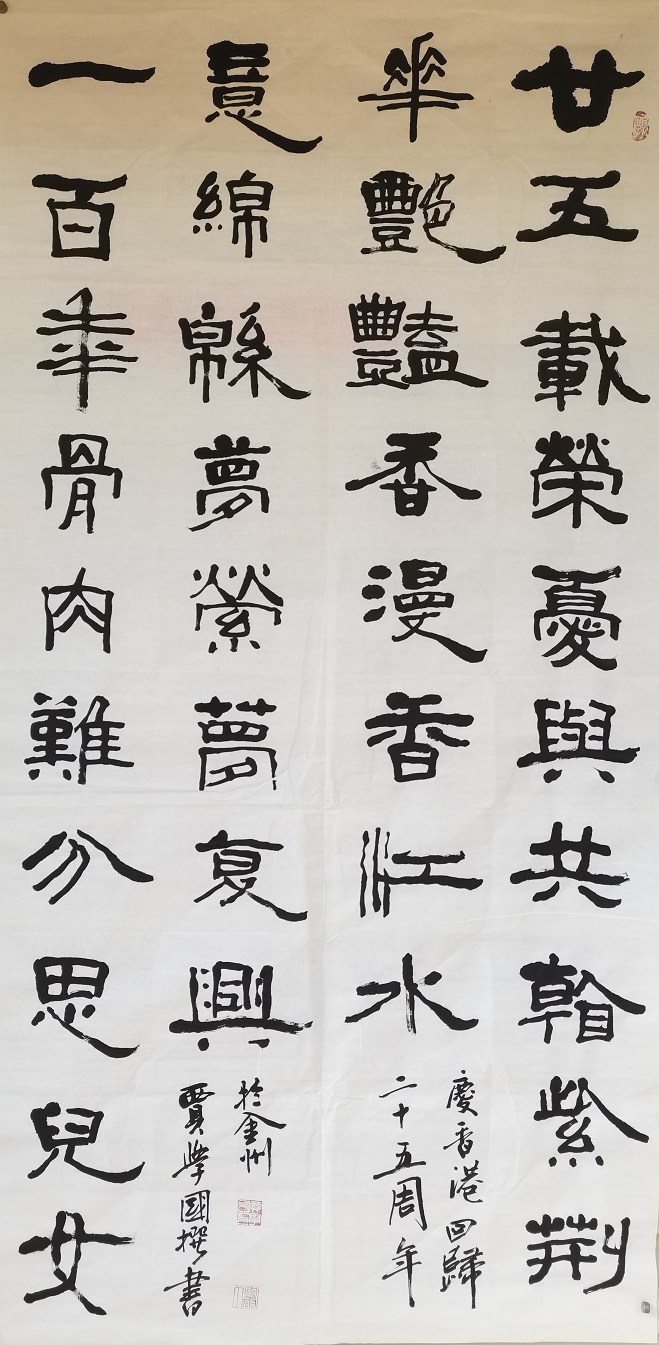 廿五載榮憂與共翰紫荊
華艷豔香漫香江水
慶香港回歸
二十五周年
一百年骨肉難分思兒女
意綿緜夢縈夢复興
賈學國撰書
於金州